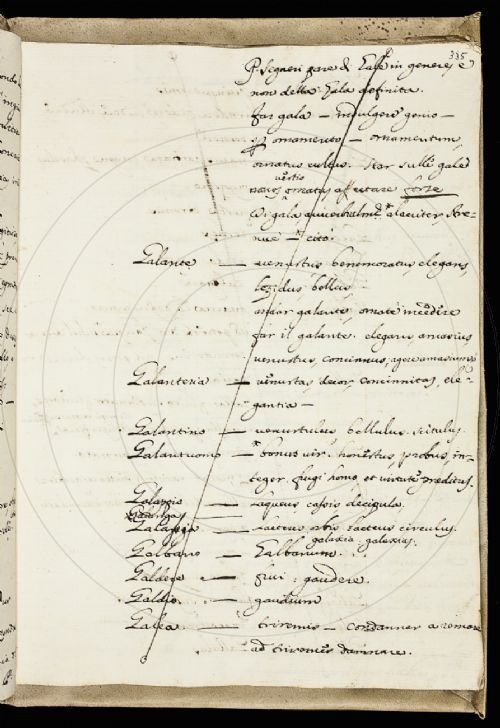 335
P. Segneri pare di Gale in genere, e
non della Gala definita.
far gala — indulgere genio —
p ornamento — ornamentum,
ornatus cultus. star sulle gale
vestis
ornatus affectare forse
di gala alacriter stre-
nuè — citò.
Galante — venustus benemoratus elegans
lepidus, bellus
andar galante, ornatè incedere
far il galante. elegans amasius
venustus, concinnus, agere amasium
Galanteria — venustas, decor concinnitas, ele-
gantia —
Galantino — venustulus bellulus. scitulus.
Galantuomo — bonus vir. honestus, probus, in-
teger. frugi homo, et virtute preditus.
Galappio — laqueus cassis decipula.
Galassia — lacteus orbis lacteus circulus.
galaxia. galaxias.
Galbano — Galbanum.
Galdere — frui. gaudere.
Galdio — gaudium
Galea — triremis — condannar a remare
ad triremes damnare.